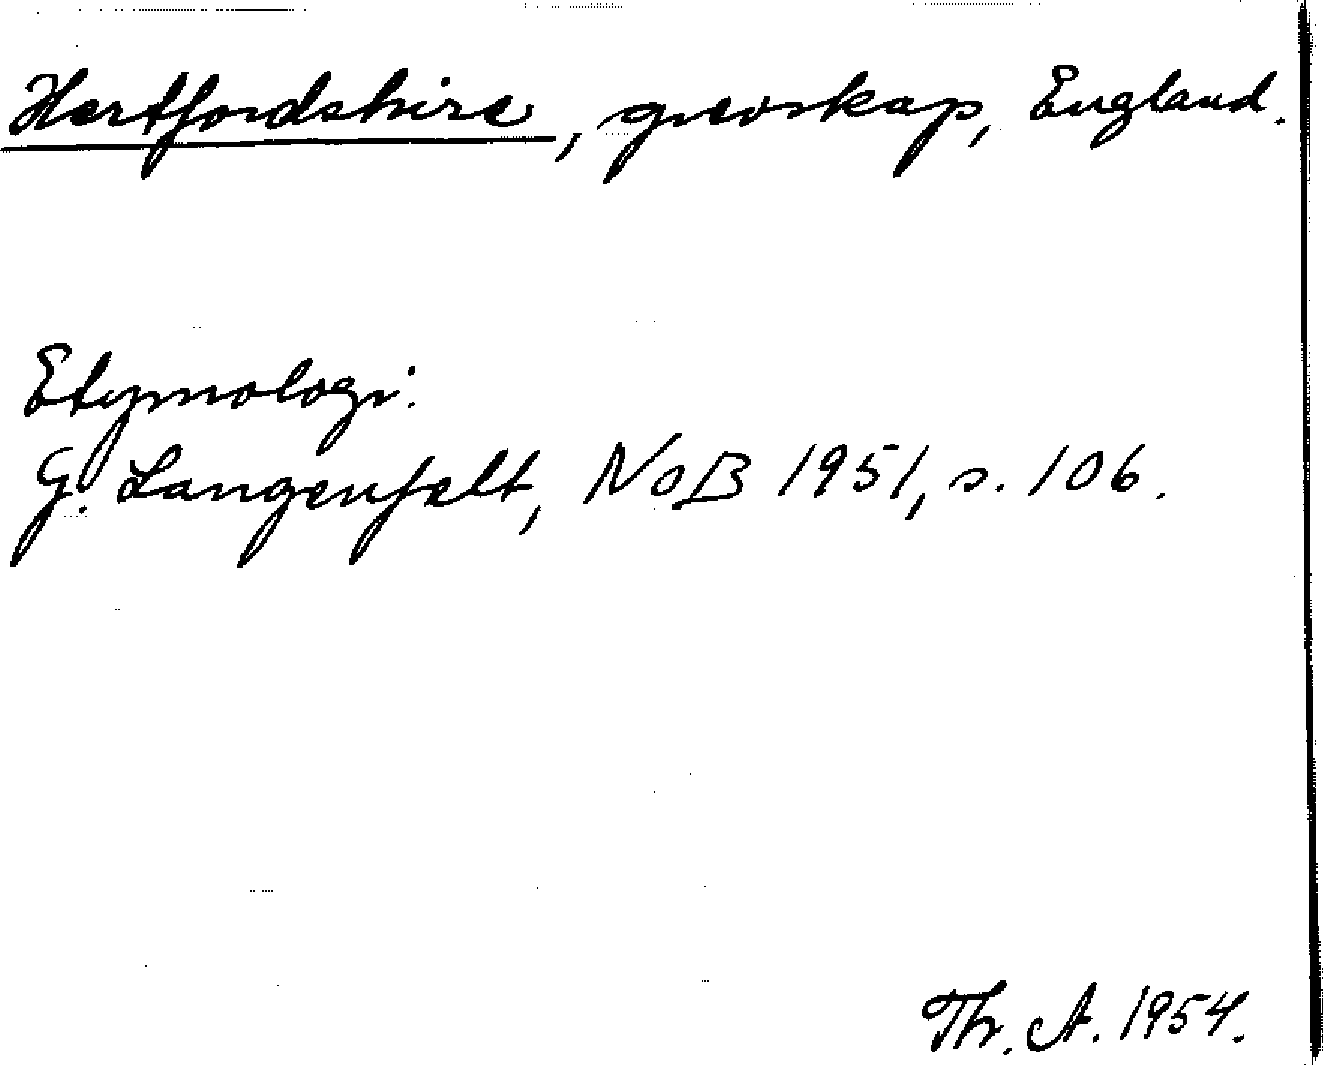 Hertfordshire, grevskap, England.
Etymologi:
G. Langenfelt, NoB 1951, s. 106.
Th. A. 1954.